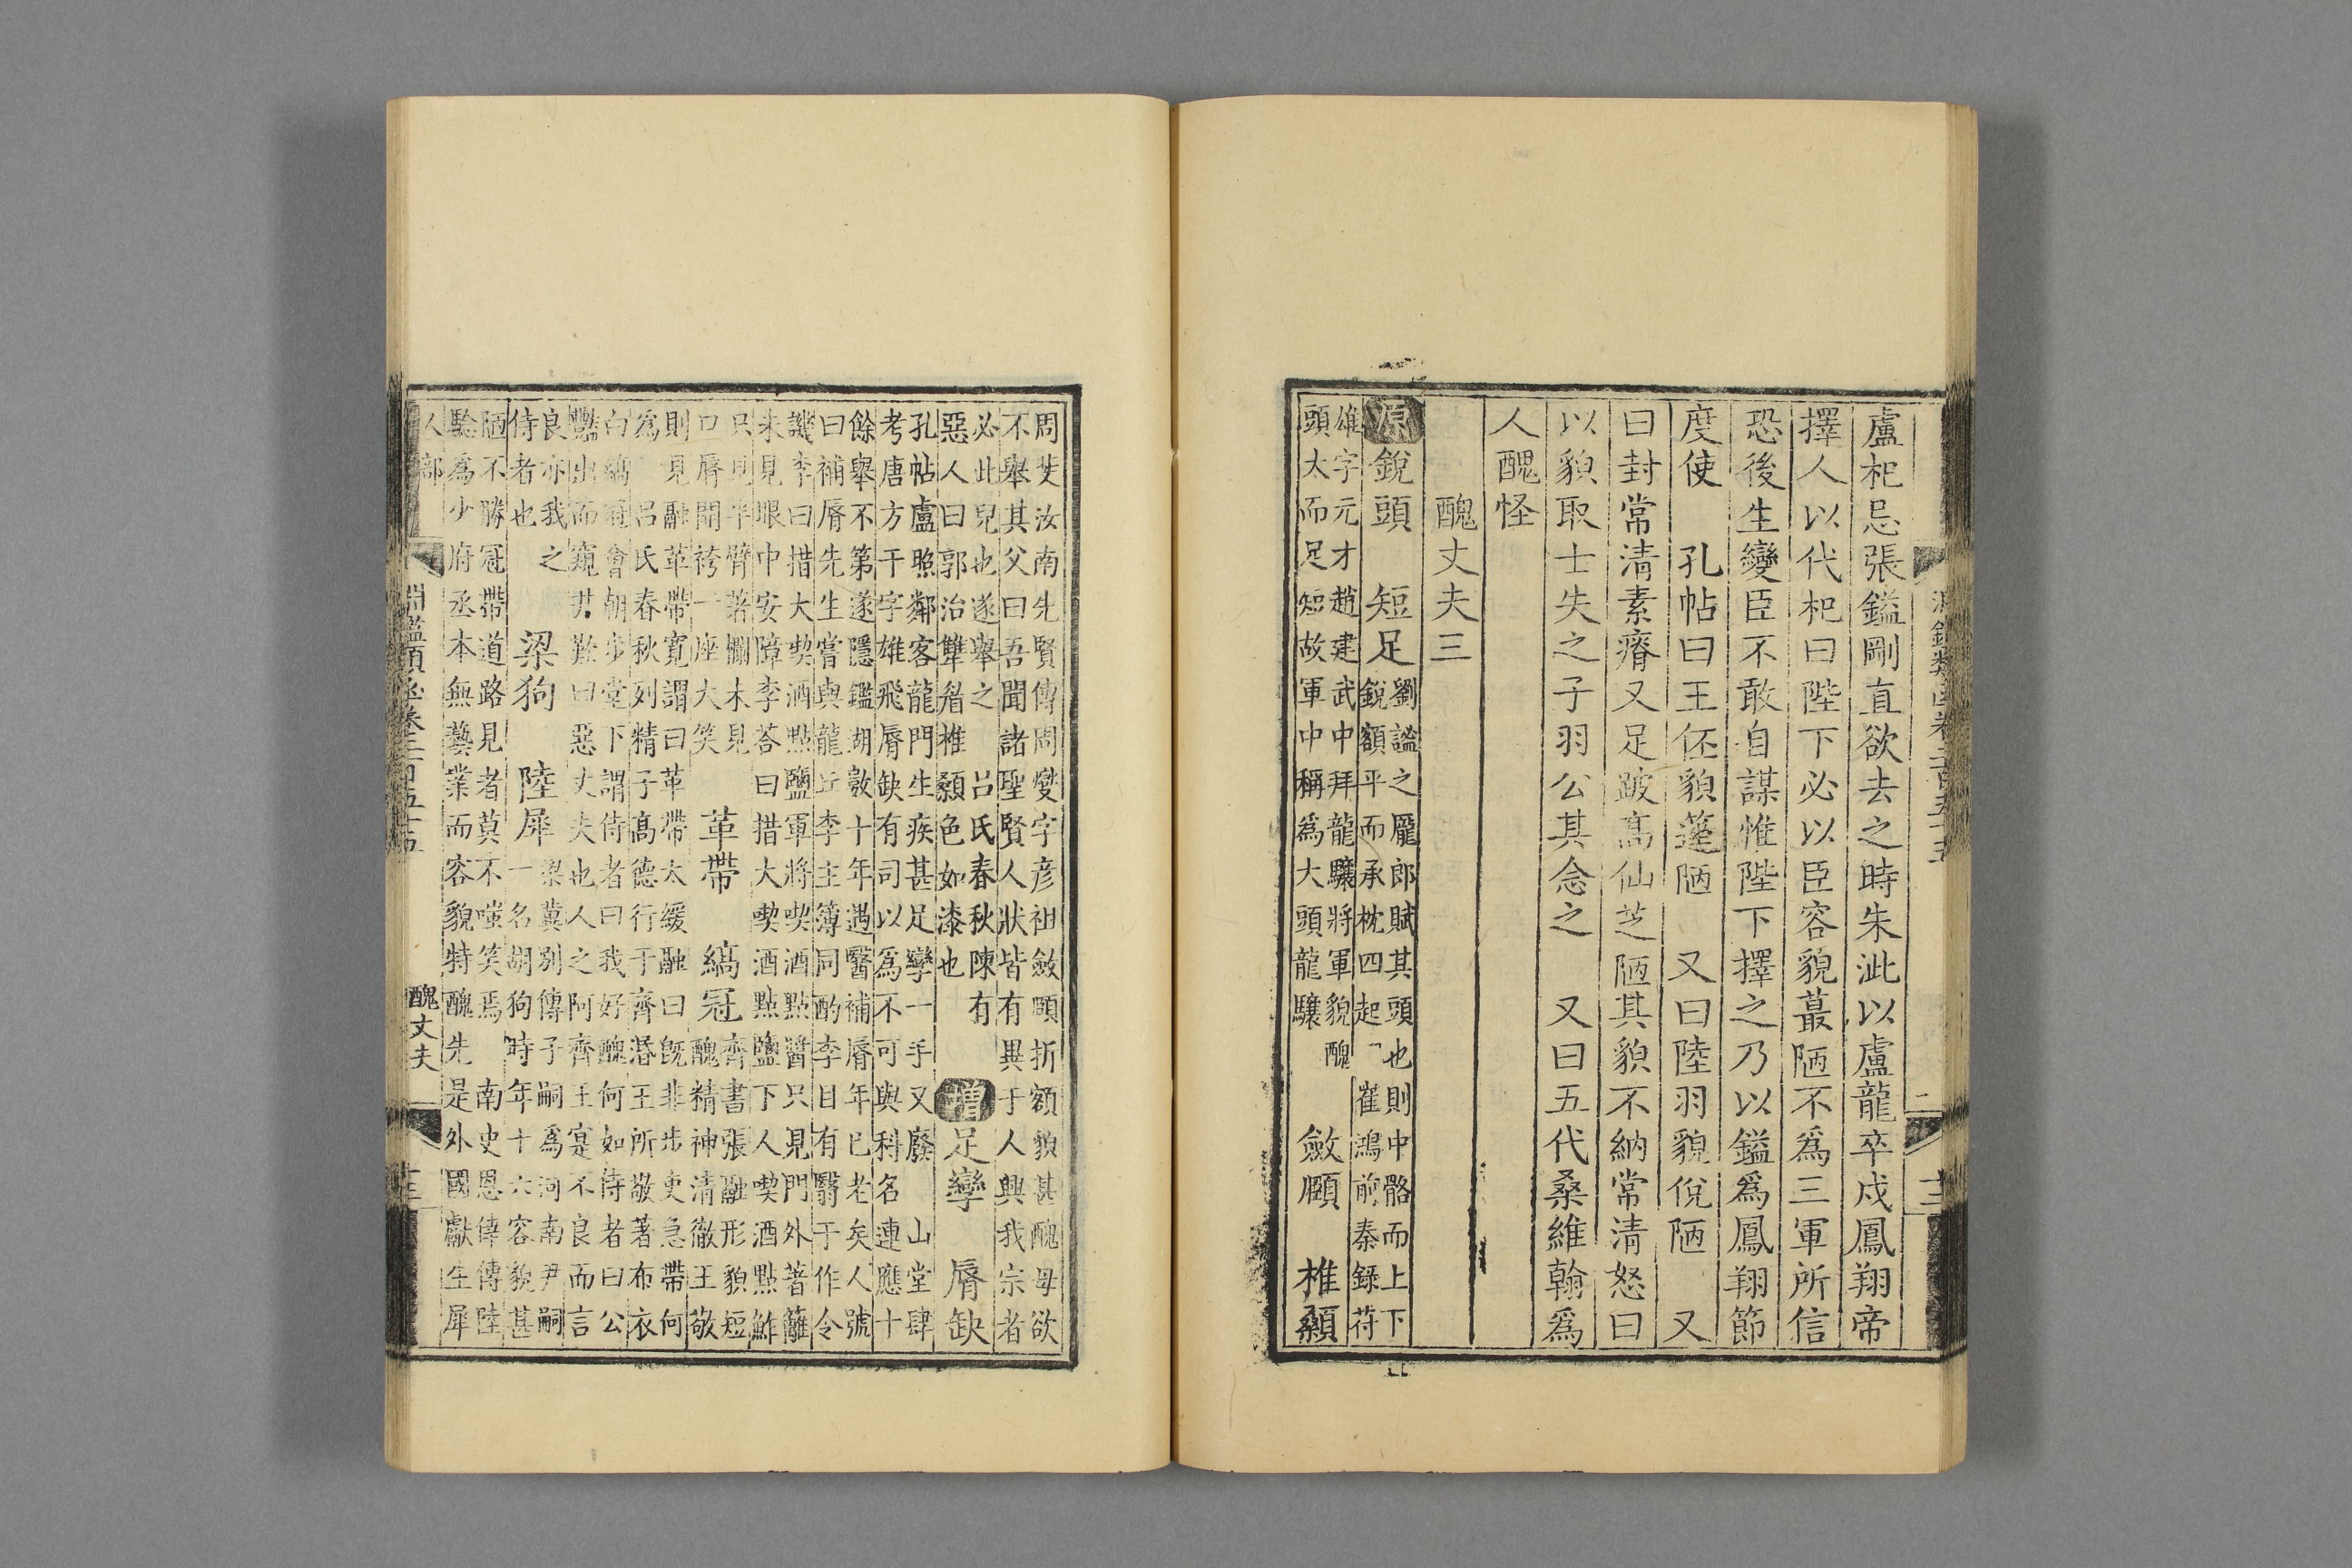 盧杞忌張鎰剛直欲去之時朱泚以盧龍卒戍鳳翔帝
擇人以代杞曰陛下必以臣容貌蕞陋不爲三軍所信
恐後生變臣不敢自謀惟陛下擇之乃以鎰爲鳳翔節
度使 孔帖曰王伾貌蓬陋 又曰陸羽貌侻陋 又
曰封常清素瘠又足跛高仙芝陋其貌不納常清怒曰
以貌取士失之子羽公其念之 又曰五代桑維翰爲
人醜怪
醜丈夫三
原銳頭 短足
劉謐之龐郎賦其頭也則中骼而上下
銳額平而承枕四起 崔鴻前秦錄苻
雄字元才趙建武中拜龍驤將軍貌醜
頭大而足短故軍中稱爲大頭龍驤
斂頤 椎顙
周斐汝南先賢傳周燮字彦祖斂頤折額貌甚醜母欲
不舉其父曰吾聞諸聖賢人狀皆有異于人興我宗者
必此兒也遂舉之 呂氏春秋陳有
惡人曰郭洽讐眉椎顙色如漆也
增足攣 脣缺
孔帖盧照鄰客龍門生疾甚足攣一手又廢 山堂肆
考唐方干字雄飛脣缺有司以爲不可與科名連應十
餘舉不第遂隱鑑湖數十年遇醫補脣年已老矣人號
曰補脣先生嘗與龍丘李主簿同酌李目有翳于作令
譏李曰措大喫酒點鹽軍將喫酒點醬只見門外著籬
未見眼中安障李荅曰措大喫酒點鹽下人喫酒點鮓
只見半臂著襴未見
口脣開袴一座大笑
革帶 縞冠
齊書張融形貌短
醜精神清徹王敬
則見融革帶寬謂曰革帶太緩融曰旣非步吏急帶何
爲 呂氏春秋列精子高德行于齊湣王所敬著布衣
白縞冠會朝步堂下謂侍者曰我好醜何如侍者曰公
豔出而窺井歎曰惡丈夫也人之阿齊王寔不良而言
良亦我之
侍者也
梁狗 陸犀
梁冀別傳子嗣爲河南尹嗣
一名胡狗時年十六容貌甚
陋不勝冠帶道路見者莫不嗤笑焉 南史恩倖傳陸
驗爲少府丞本無藝業而容貌特醜先是外國獻生犀
人部
淵鑑類函卷二百五十五
醜丈夫
十三